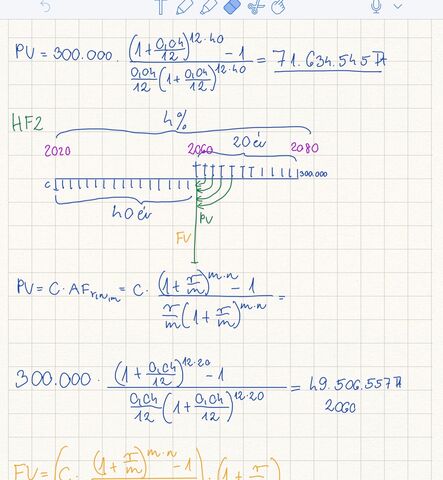 PV = 300.000 · (1+0,04/12)^12·40 - 1 / 0,04/12 (1+0,04/12)^12·40 = 71.634.545 Ft
HF2
4%
2020 2060 20 év 2080
C 300.000
40 év PV
FV
PV = C · AF r,n,m = C · (1+r/m)^m·n - 1 / r/m (1+r/m)^m·n =
300.000 · (1+0,04/12)^12·20 - 1 / 0,04/12 (1+0,04/12)^12·20 = 49.506.557 Ft
2060
FV = (C · (1+r/m)^m·n - 1) · (1+r